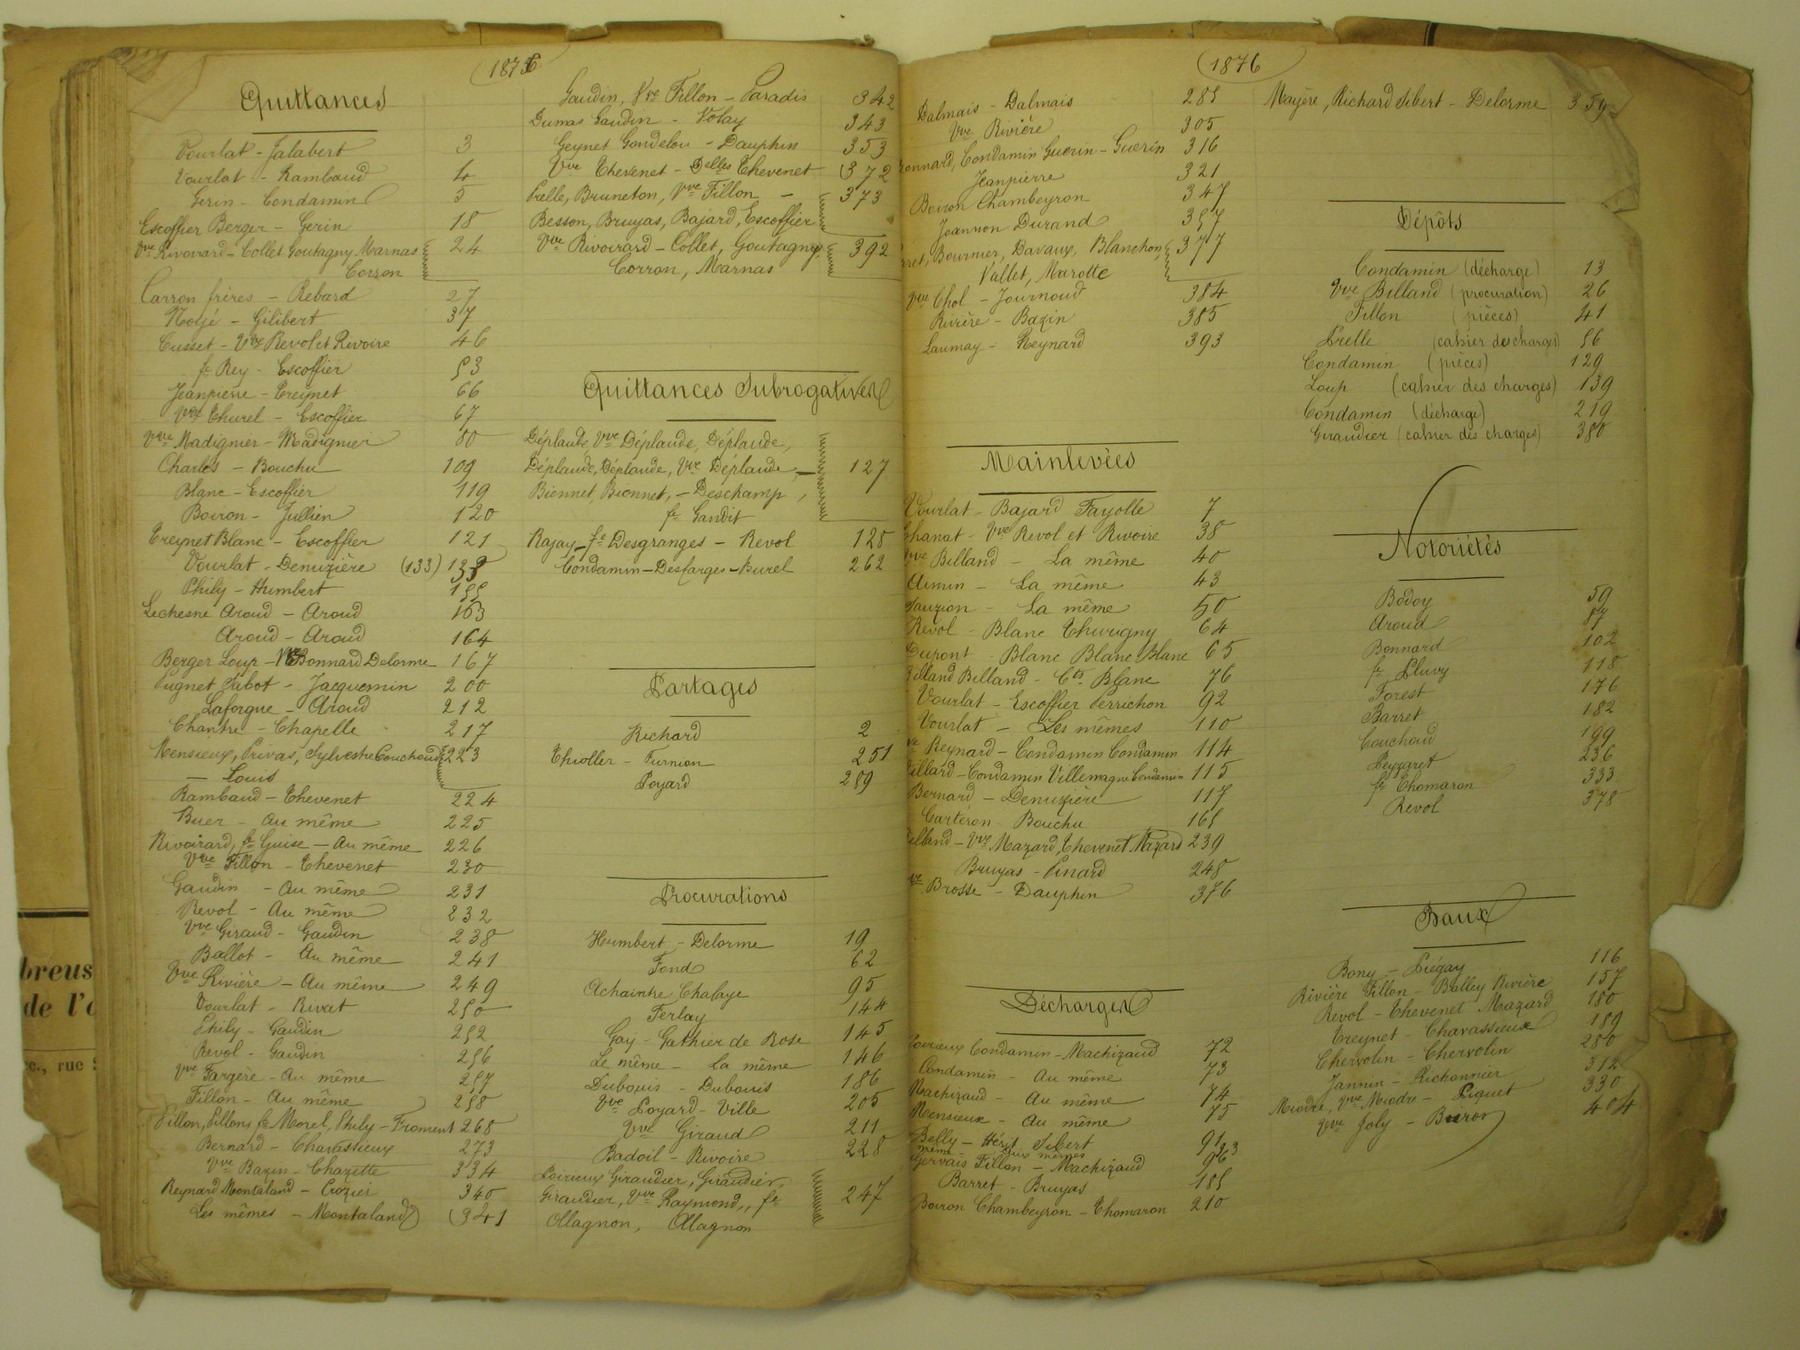 1876
Quittances
Vourlat - Jalabert 3
Vourlat - Rambaud 4
Gerin - Condamin 5
Escoffier Berger - Gerin 18
Vve Rivoirard - Collet Goutagny Marnas 24
Corron
Carron frères - Rebard 27
Notjé - Gilibert 37
Cusset - Vve Revol et Rivoire 46
fe Rey - Escoffier 53
Jeanpierre - Treynet 66
Vve Thurel - Escoffier 67
Vve Madignier - Madignier 80
Charles - Bouchu 109
Blanc - Escoffier 119
Boiron - Jullien 120
Treynet Blanc - Escoffier 121
Vourlat - Denuzière (133) 133
Phily - Humbert 155
Lechesne Aroud - Aroud 163
Aroud - Aroud 164
Berger Loup - Bonnard Delorme 167
Pugnet Jabot - Jacquemin 200
Laforgue - Aroud 212
Chantre - Chapelle 217
Mensieux, Privas, Sylvestre Couchoud 223
- Louis
Rambaud - Thevenet 224
Buer - au même 225
Rivoirard, fe Guise - Au même 226
Vve Fillon - Thevenet 230
Gaudin - Au même 231
Revol - Au même 232
Vve Giraud - Gaudin 238
Ballot - Au même 241
Vve Rivière - Au même 249
Vourlat - Rivat 250
Phily - Gaudin 252
Revol - Gaudin 256
Vve Fargère - Au même 257
Fillon - Au même 258
Fillon, Fillons, fe Morel, Phily - Froment 268
Bernard - Chavassieux 273
Vve Bazin - Chazette 334
Reynard Montaland - Crozier 340
Les mêmes - Montaland (341
Gaudin, Vve Fillon - Paradis 342
Dumas Gaudin - Volay 343
Geynet Gondelou - Dauphin 353
Vve Thevenet - Delles Thevenet (372
Prelle, Bruneton, Vve Fillon - 373
Besson, Bruyas, Bajard, Escoffier
Vve Rivoirard - Collet, Goutagny, 392
Corron, Marnas
Quittances Subrogatives
Déplaude, Vve Déplaude, Déplaude,
Déplaude, Déplaude, Vve Déplaude - 127
Biennet, Bionnet, - Deschamp,
fe Gandit
Rajay - fe Desgranges - Revol 128
Condamin - Desfarges - Burel 262
Partages
Richard 2
Thioller - Furnion 251
Poyard 289
Procurations
Humbert - Delorme 19
Fond 62
Achaintre Chalaye 95
Ferlay 144
Gay - Gathier de Rose 145
Le même - La même 146
Dubouis - Dubouis 186
Vve Poyard - Ville 205
Vve Giraud 211
Badoil - Rivoire 228
Poirieux Giraudier, Giraudier,
Giraudier, Vve Raymond, fe 247
Ollagnon, Ollagnon
1876
Dalmais - Dalmais 285
Vve Rivière 305
Bonnard, Condamin Guerin - Guerin 316
Jeanpierre 321
Boiron Chambeyron 347
Jeannon Durand 357
Bournier, Davaux, Blanchon, 377
Vallet, Marotte
Vve Chol - Journoud 384
Rivière - Bazin 385
Laumay - Reynard 393
Mainlevées
Vourlat - Bajard Fayolle 7
Chanat - Vve Revol et Rivoire 38
Vve Billand - La même 40
Aimin - La même 43
Sauzion - La même 50
Revol - Blanc Thurigny 64
Dupont - Blanc Blanc Blanc 65
Billand Billand - Cts Blanc 76
Vourlat - Escoffier Perrichon 92
Vourlat - Les mêmes 110
Vve Reynard - Condamin Condamin 114
Villard - Condamin Villemagne Condamin 115
Bernard - Denuzière 117
Carteron - Bouchu 165
Billand - Vve Mazard, Thevenet Mazard 239
Bruyas - Pinard 248
Vve Brosse - Dauphin 376
Décharges
Poirieux Condamin - Machizaud 72
Condamin - Au même 73
Machizaud - Au même 74
Mensieux - Au même 75
Belly - Hérit. Sibert 91
même - Aux mêmes 93
Gervais Fillon - Machizaud 96
Barret - Bruyas 185
Boiron Chambeyron - Thomaron 210
Mayère, Richard Sibert - Delorme 359
Dépôts
Condamin (décharge) 13
Vve Billand (procuration) 26
Fillon (pièces) 41
Prelle (cahier des charges) 56
Condamin (pièces) 129
Loup (cahier des charges) 139
Condamin (décharge) 219
Giraudier (cahier des charges) 380
Notoriétés
Bodoy 59
Aroud 87
Bonnard 102
fe Pluvy 118
Forest 176
Barret 182
Couchoud 199
Peyzaret 236
fe Thomaron 333
Revol 378
Baux
Bony - Piégay 116
Rivière Fillon - Balley Rivière 157
Revol - Thevenet Mazard 180
Treynet - Chavassieux 189
Chervolin - Chervolin 280
Jannin - Richonnier 312
Miodre, Vve Miodre - Piquet 330
Vve Joly - Buron 404
breus
de l'
rue